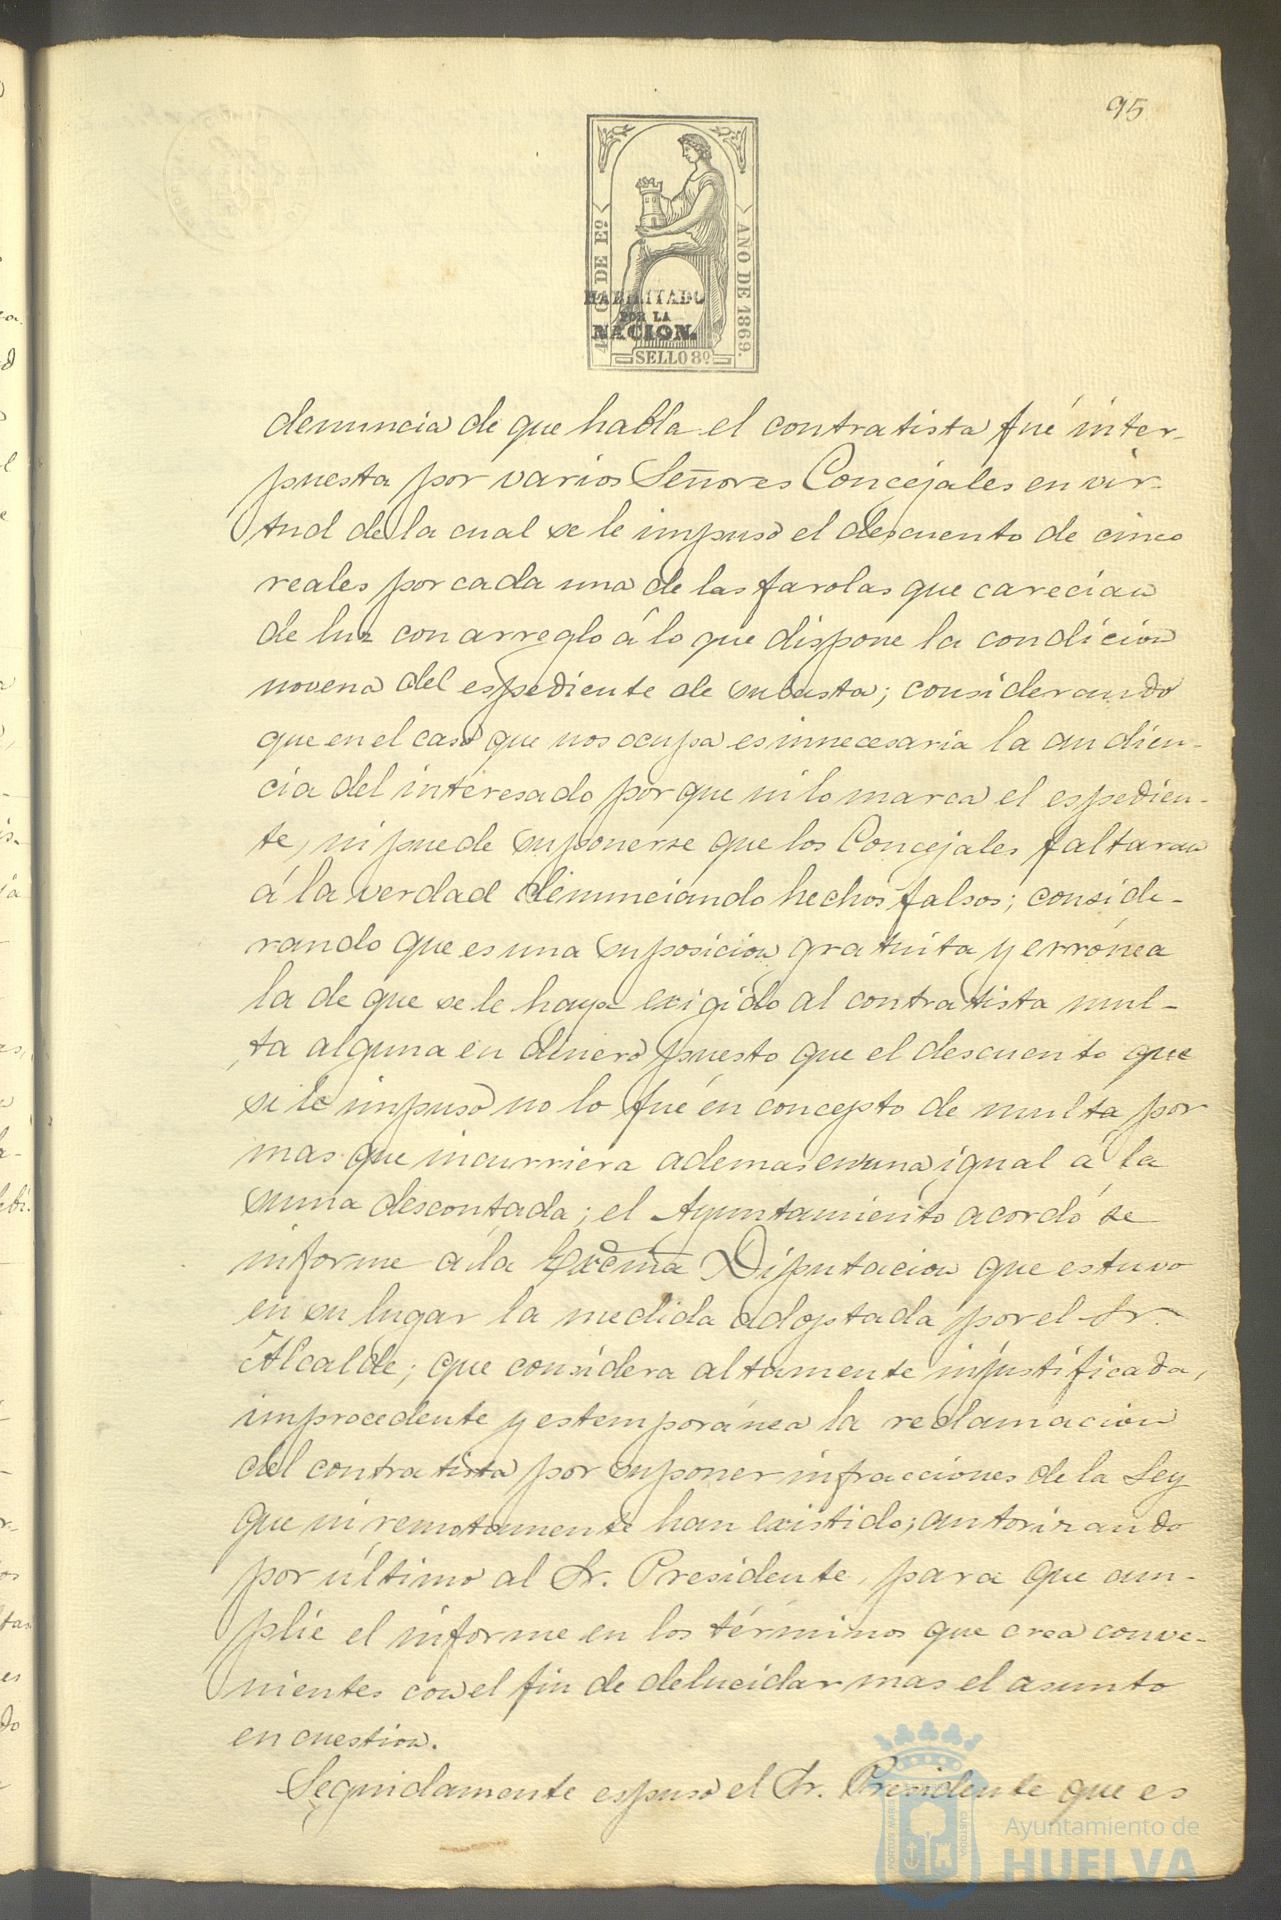 95
4[?]0 DE Eº
AÑO DE 1869.
HABILITADO
POR LA
NACION.
SELLO 8º
denuncia de que habla el contratista fué inter-
puesta por varios Señores Concejales en vir-
tud de la cual se le impuso el descuento de cinco
reales por cada una de las farolas que carecian
de luz con arreglo á lo que dispone la condicion
novena del espediente de subasta; considerando
que en el caso que nos ocupa es innecesaria la audien-
cia del interesado por que ni lo marca el espedien-
te, ni puede suponerse que los Concejales faltaran
á la verdad denunciando hechos falsos; conside-
rando que es una suposicion gratuita y errónea
la de que se le haya exigido al contratista mul-
ta alguna en dinero puesto que el descuento que
se le impuso no lo fué en concepto de multa por
mas que incurriera ademas en una igual á la
suma descontada; el Ayuntamiento acordó se
informe á la Excma Diputacion que estuvo
en su lugar la medida adoptada por el Sr.
Alcalde; que considera altamente injustificada,
improcedente y estemporánea la reclamacion
del contratista por suponer infracciones de la Ley
que ni remotamente han existido; autorizando
por último al Sr. Presidente, para que am-
plie el informe en los términos que crea conve-
nientes con el fin de delucidar mas el asunto
en cuestion.
Seguidamente espuso el Sr. Presidente que es
PORTUS MARIS
CUSTODIA
Ayuntamiento de
HUELVA